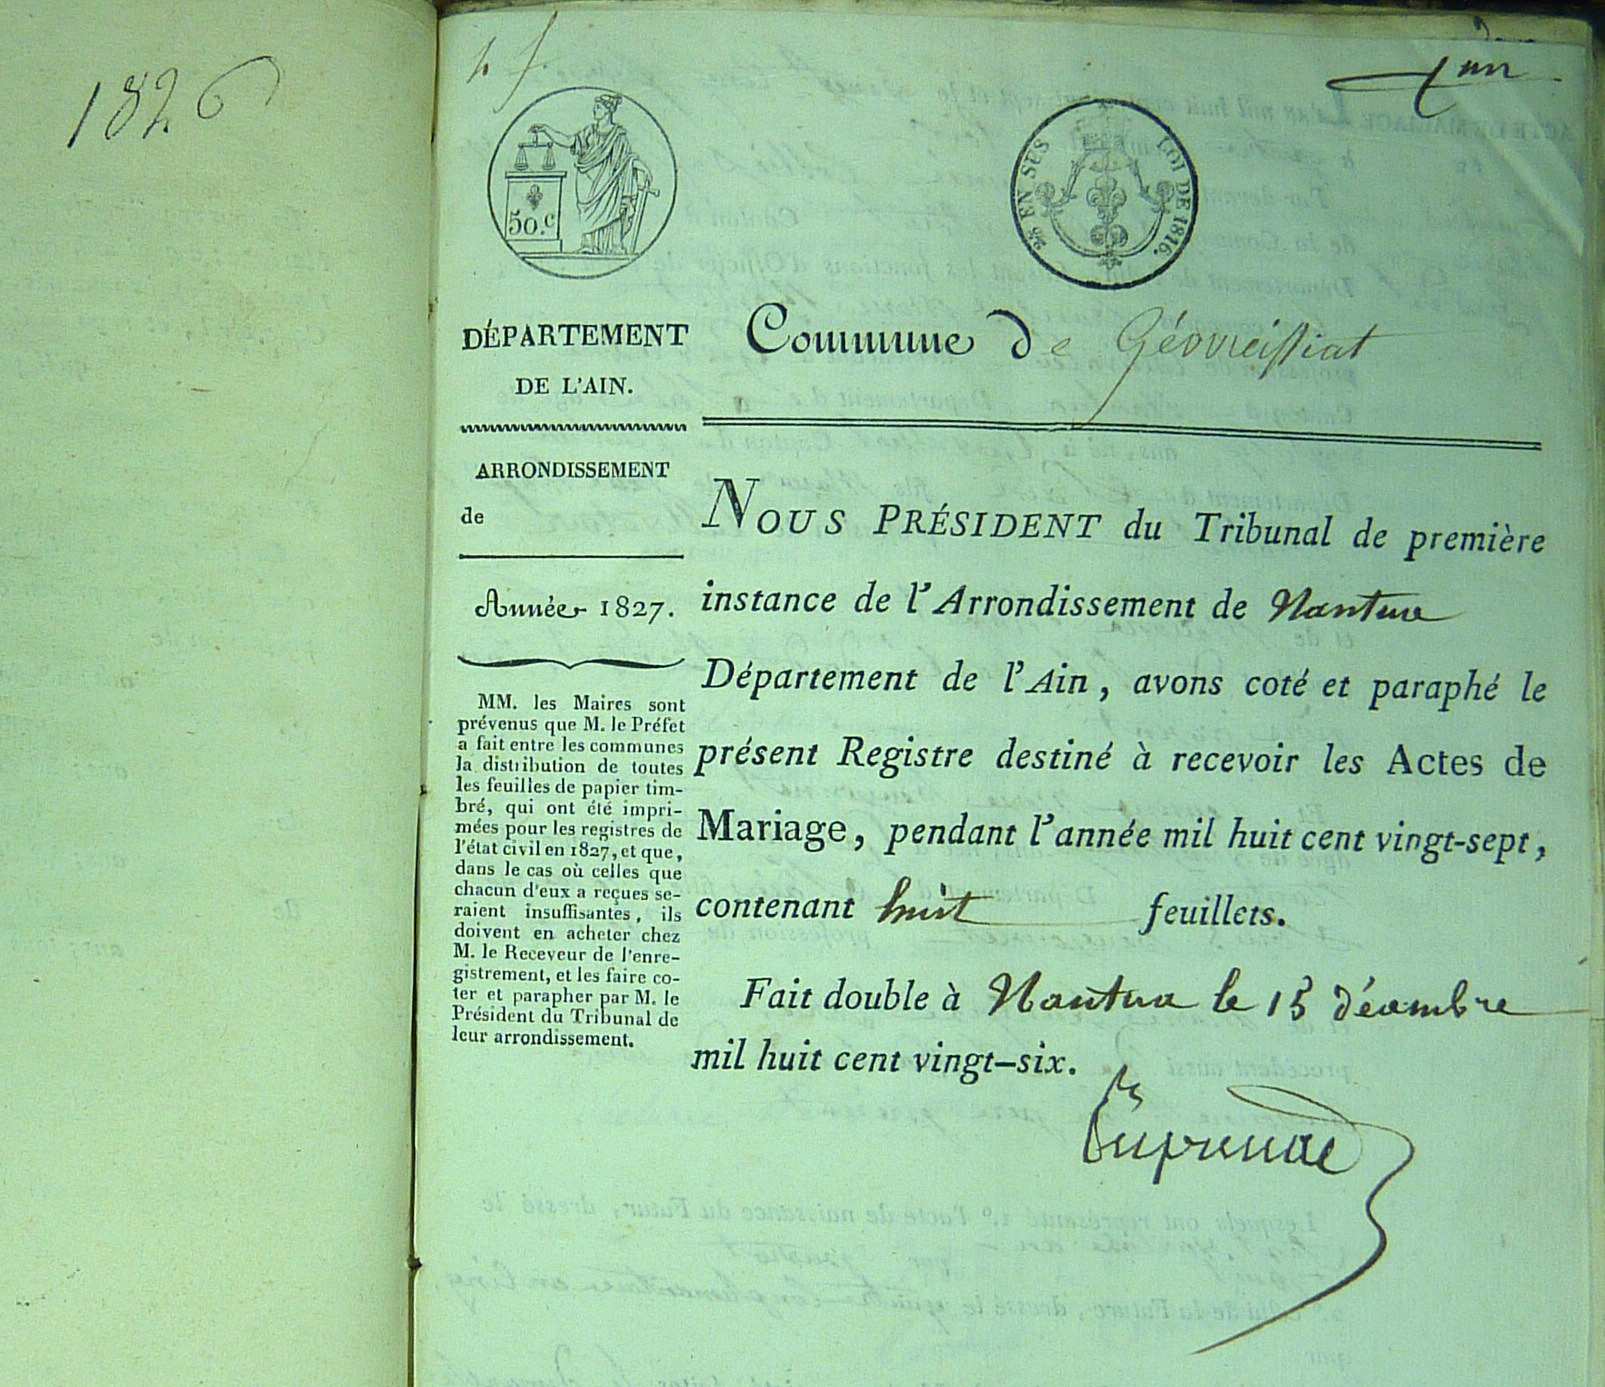 1826
un
50.c
25 EN SUS
LOI DE 1816.
DÉPARTEMENT
DE L'AIN.
Commune de Géovreissiat
ARRONDISSEMENT
de
Année 1827.
MM. les Maires sont
prévenus que M. le Préfet
a fait entre les communes
la distribution de toutes
les feuilles de papier tim-
bré, qui ont été impri-
mées pour les registres de
l'état civil en 1827, et que,
dans le cas où celles que
chacun d'eux a reçues se-
raient insuffisantes, ils
doivent en acheter chez
M. le Receveur de l'enre-
gistrement, et les faire co-
ter et parapher par M. le
Président du Tribunal de
leur arrondissement.
NOUS PRÉSIDENT du Tribunal de première
instance de l'Arrondissement de Nantua
Département de l'Ain, avons coté et paraphé le
présent Registre destiné à recevoir les Actes de
Mariage, pendant l'année mil huit cent vingt-sept,
contenant huit feuillets.
Fait double à Nantua le 15 décembre
mil huit cent vingt-six.